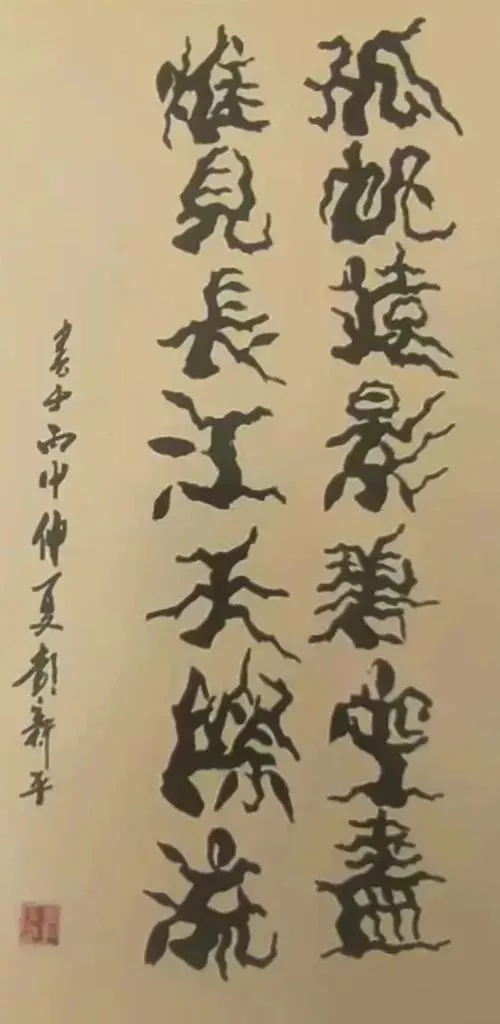 孤帆遠影碧空盡
惟見長江天際流
書于丙申仲夏彭新平